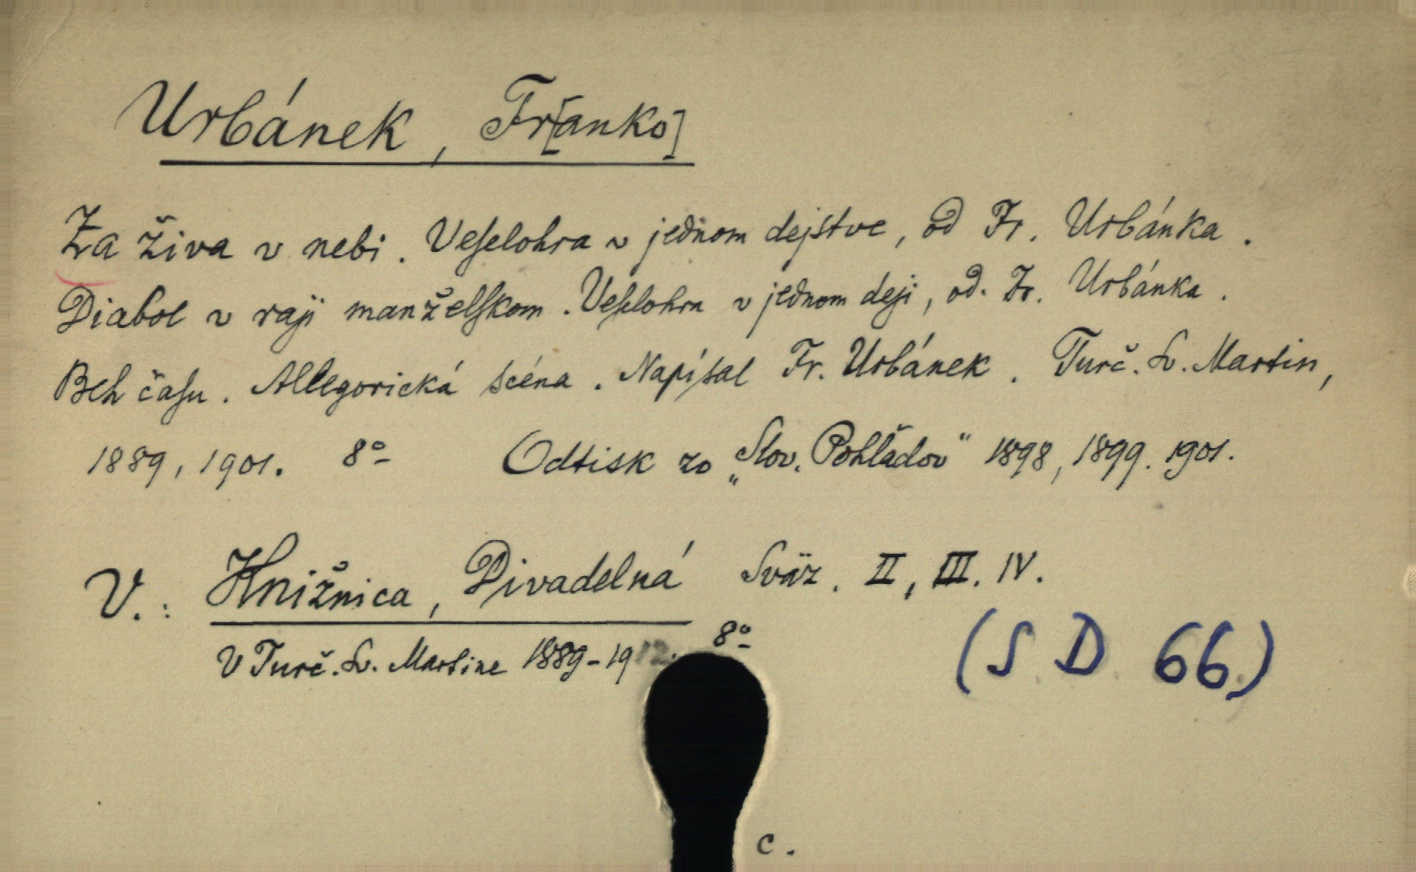 Urbánek, Fr[anko]
Za živa v nebi. Veselohra v jednom dejstve, od Fr. Urbánka.
Diabol v raji manželskom. Veselohra v jednom deji, od. Fr. Urbánka.
Beh času. Allegorická scéna. Napísal Fr. Urbánek. Turč. Sv. Martin,
1889, 1901. 8° Odtisk zo „Slov. Pohľadov" 1898, 1899. 1901.
V.: Knižnica, Divadelná Sväz. II, III. IV.
V Turč. Sv. Martine 1889-1912. 8°
(S D 66)
c.